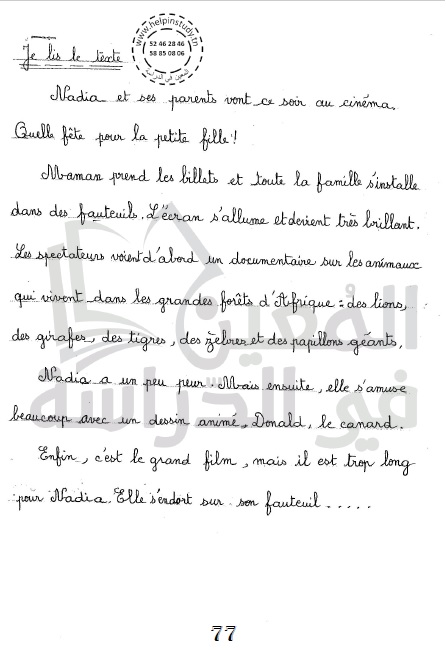 www.helpinstudy.tn
52 46 28 46
58 85 08 06
المعين في الدراسة
Je lis le texte
Nadia et ses parents vont ce soir au cinéma.
Quelle fête pour la petite fille !
Maman prend les billets et toute la famille s'installe
dans des fauteuils. L'écran s'allume et devient très brillant.
Les spectateurs voient d'abord un documentaire sur les animaux
qui vivent dans les grandes forêts d'Afrique : des lions,
des girafes, des tigres, des zèbres et des papillons géants,
Nadia a un peu peur. Mais ensuite, elle s'amuse
beaucoup avec un dessin animé, Donald, le canard.
Enfin, c'est le grand film, mais il est trop long
pour Nadia. Elle s'endort sur son fauteuil .....
المعين
في الدراسة
77